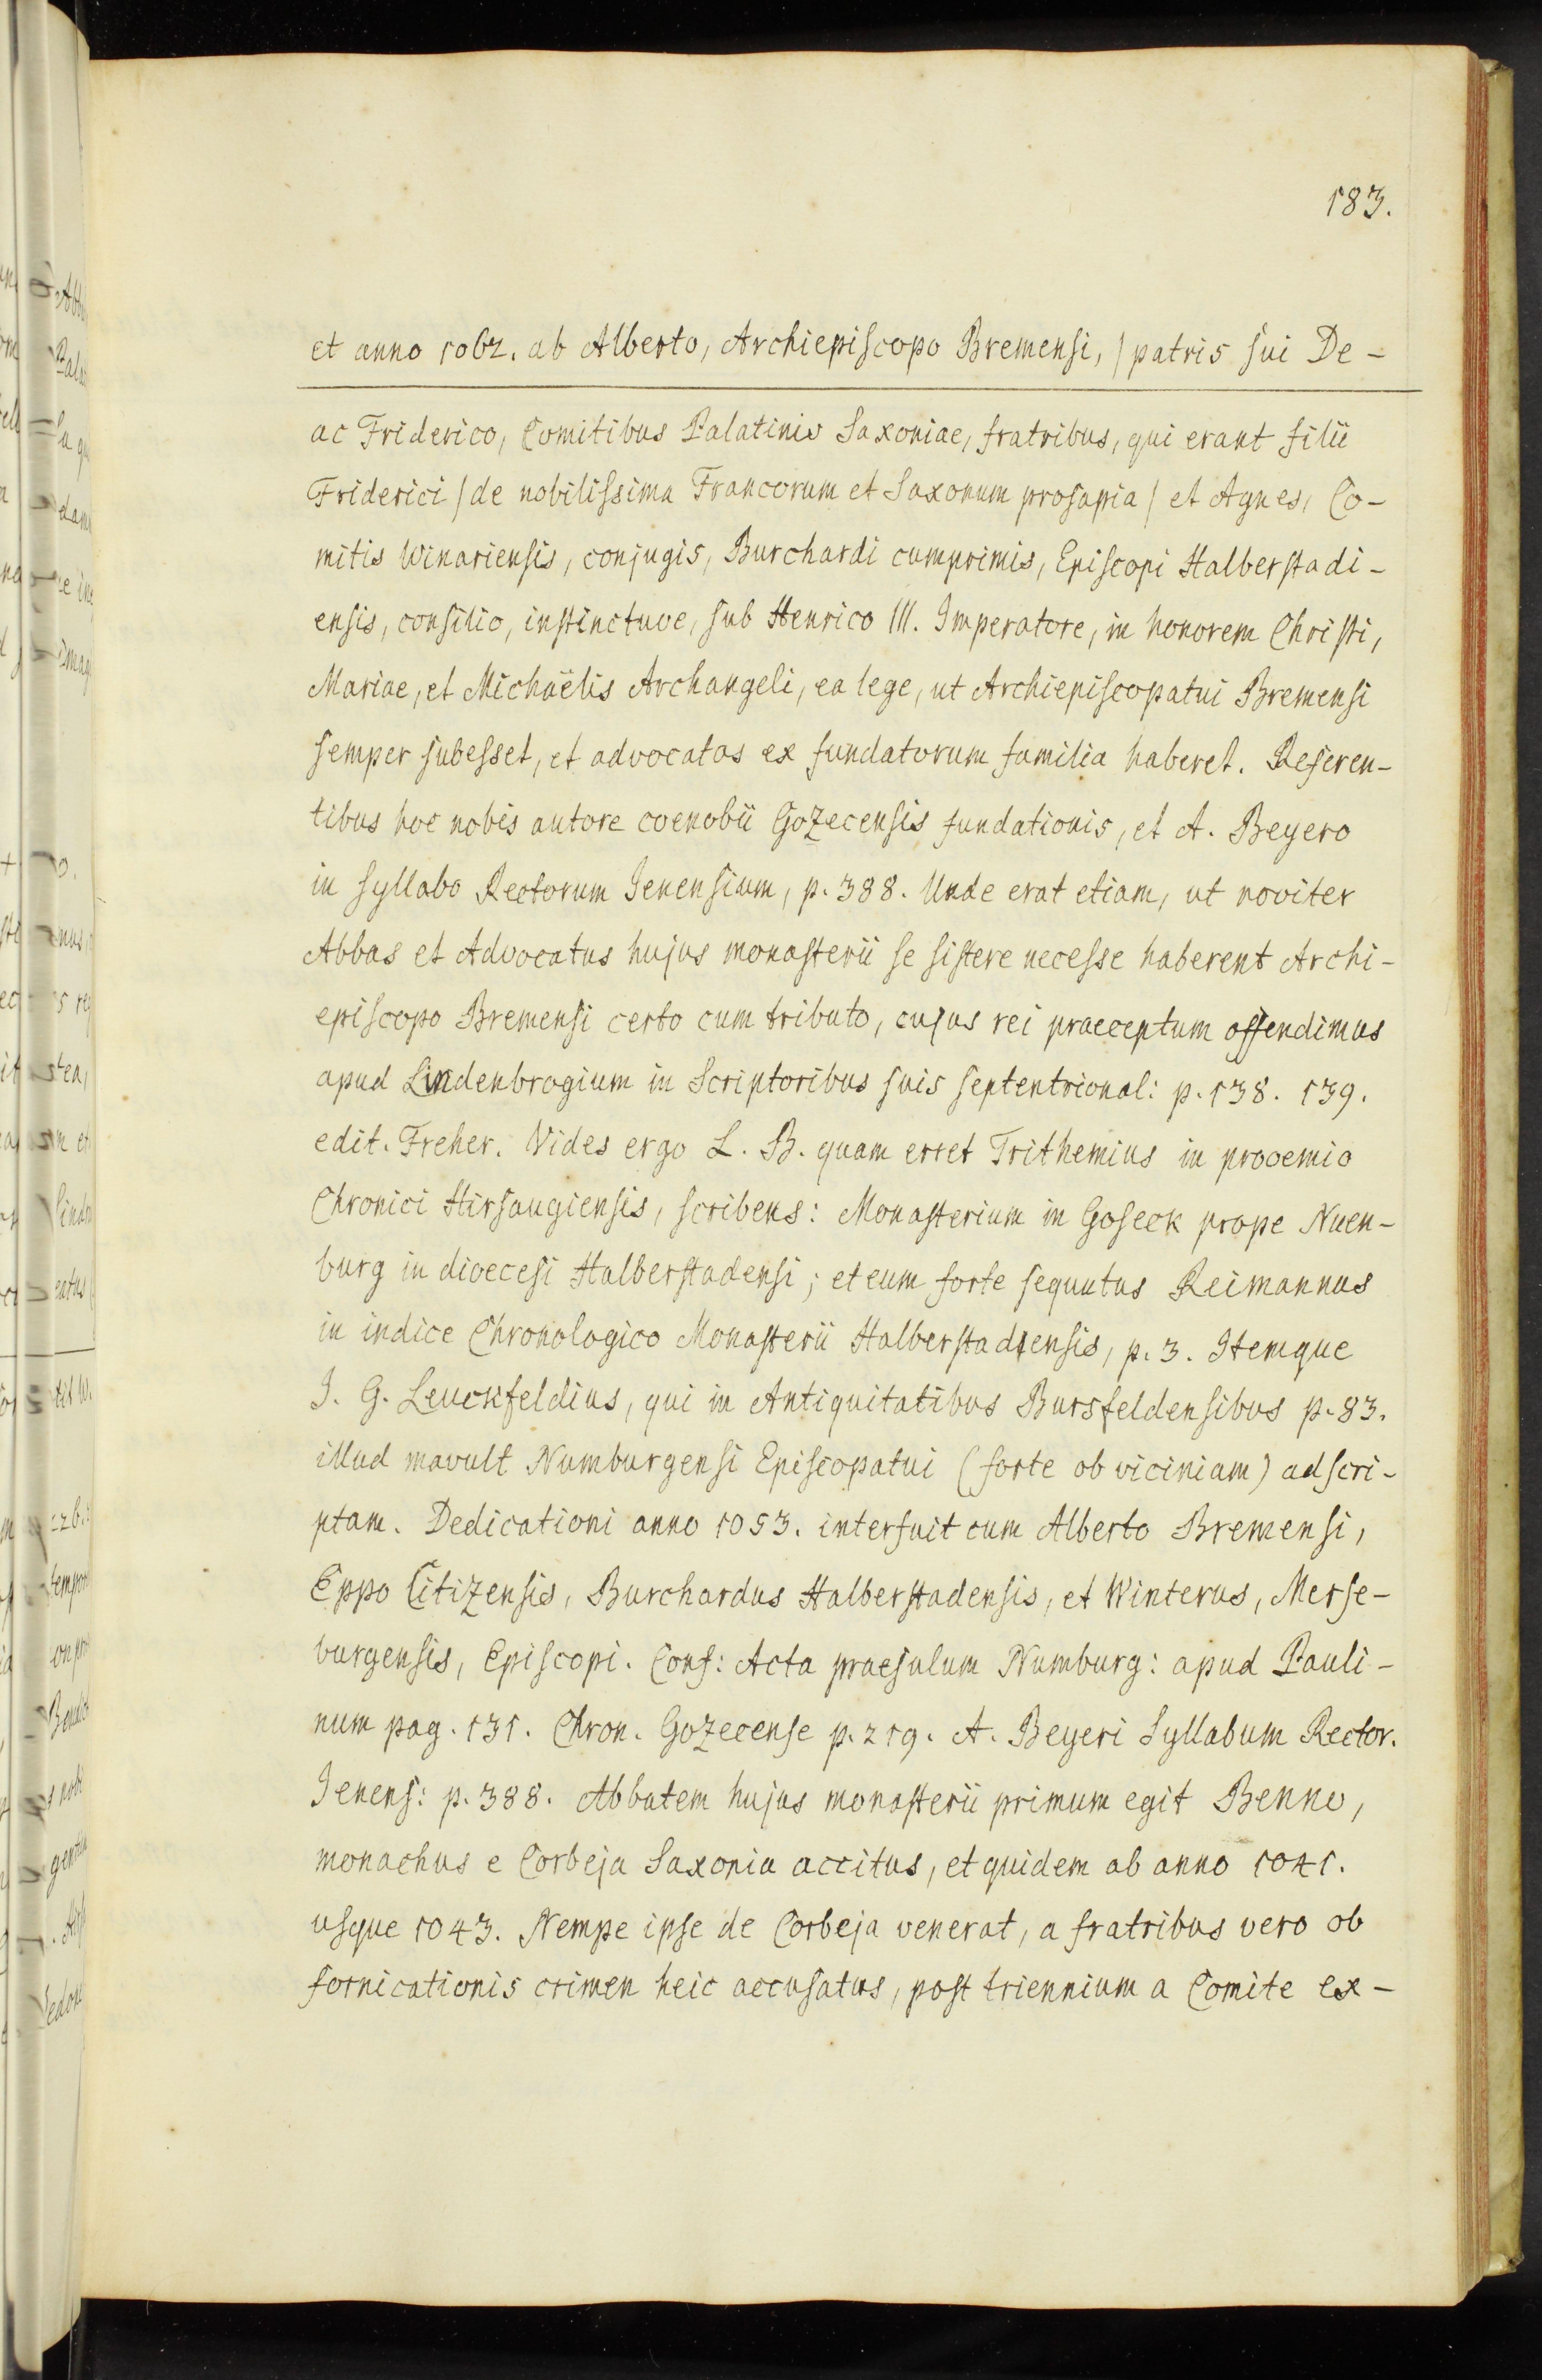 183.
et anno 1062. ab Alberto, Archiepiscopo Bremensi, / patris sui De-
ac Friderico, Comitibus Palatinis Saxoniae, fratribus, qui erant filii
Friderici / de nobilissima Francorum et Saxonum prosapia / et Agnes, Co-
mitis Winariensis, conjugis, Burchardi cumprimis, Episcopi Halberstadi-
ensis, consilio, instinctuve, sub Henrico III. Imperatore, in honorem Christi,
Mariae, et Michaëlis Archangeli, ea lege, ut Archiepiscopatui Bremensi
semper subesset, et advocatos ex fundatorum familia haberet. Referen-
tibus hoc nobis autore coenobii Gozecensis fundationis, et A. Beyero
in syllabo Rectorum Jenensium, p. 388. Unde erat etiam, ut noviter
Abbas et Advocatus hujus monasterii se sistere necesse haberent Archi-
episcopo Bremensi certo cum tributo, cujus rei praeceptum offendimus
apud Lindenbrogium in Scriptoribus suis septentrional: p. 138. 139.
edit. Freher. Vides ergo L. B. quam erret Trithemius in prooemio
Chronici Hirsaugiensis, scribens: Monasterium in Goseck prope Nuen-
burg in dioecesi Halberstadensi; et eum forte sequutus Reimannus
in indice Chronologico Monasterii Halberstadiensis, p. 3. Itemque
J. G. Leuckfeldius, qui in Antiquitatibus Bursfeldensibus p. 83.
illud mavult Numburgensi Episcopatui (forte ob viciniam) adscri-
ptam. Dedicationi anno 1053. interfuit cum Alberto Bremensi,
Eppo Citizensis, Burchardus Halberstadensis, et Winterus, Merse-
burgensis, Episcopi. Conf: Acta praesulum Numburg: apud Pauli-
num pag. 131. Chron. Gozecense p. 219. A. Beyeri Syllabum Rector.
Jenens: p. 388. Abbatem hujus monasterii primum egit Benno,
monachus e Corbeja Saxonia accitus, et quidem ab anno 1041.
usque 1043. Nempe ipse de Corbeja venerat, a fratribus vero ob
fornicationis crimen heic accusatus, post triennium a Comite ex-